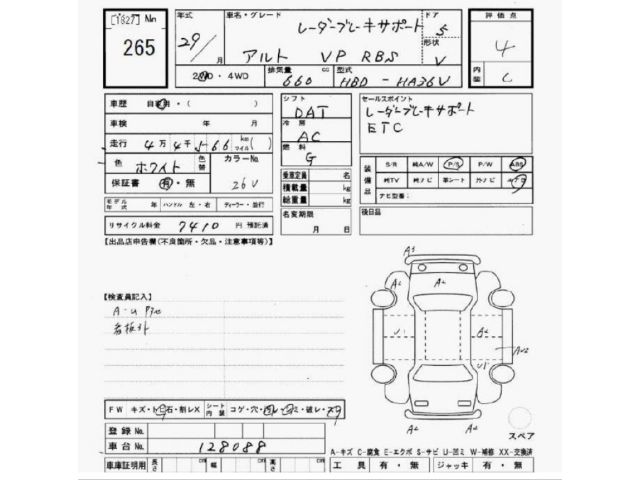 [1827] No
265
年式 29/ 月
車名・グレード レーダーブレーキサポート
アルト VP RBS
ドア 5
形状 V
評価点 4
内装 C
2WD・4WD
排気量 660 cc
型式 HBD - HA36V
車歴 自家用・( )
車検 年 月
走行 4万4千566 km マイル ( )
色 ホワイト 色替
カラーNo. 26V
保証書 有・無
モデル年式 年 ハンドル 左・右 ディーラー・並行
リサイクル料金 7410 円 預託済
シフト DAT
冷房 AC
燃料 G
乗車定員 名
積載量 kg
総重量 kg
名変期限 月 日
セールスポイント
レーダーブレーキサポート
ETC
装備品 S/R 純A/W P/S P/W ABS
純TV 純ナビ 革シート 外ナビ エアB
ナビ型番:
後日品
【出品店申告欄(不良箇所・欠品・注意事項等)】
【検査員記入】
A・U
看板外
A3
A2 A2
U1 B2
AU2
U1
A2 A2
スペア
FW キズ・ト石・削レX シート内装 コゲ・穴・汚レ・破レ・スリ
登録No.
車台No. 128088
車庫証明用 長さ cm 幅 cm 高さ cm
A-キズ C-腐食 E-エクボ S-サビ U-凹ミ W-補修 XX-交換済
工具 有・無 ジャッキ 有・無